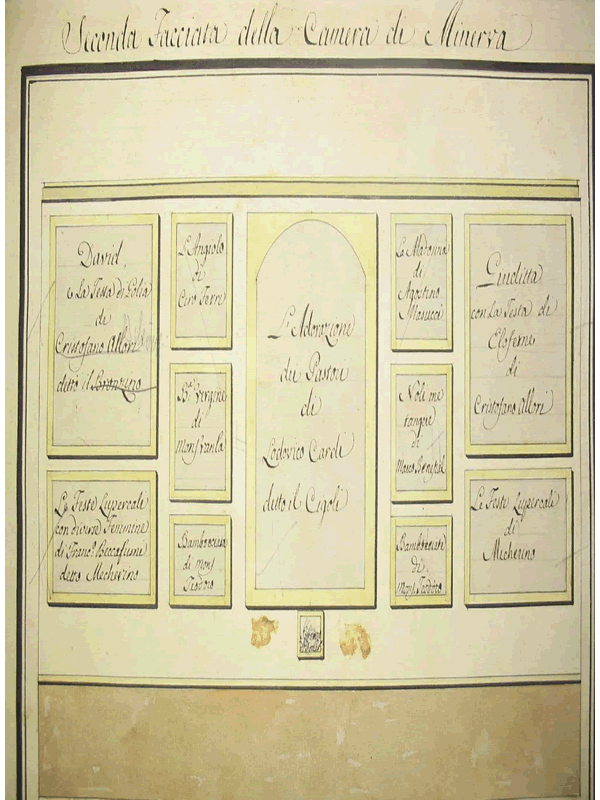 Seconda Facciata della Camera di Minerva
David,
e La Testa di Golia
di
Cristofano Allori
detto il Bronzino
L'Angiolo
di
Ciro Ferri
L'Adorazione
dei Pastori
di
Lodovico Cardi
detto il Cigoli
La Madonna
di
Agostino
Masucci
Giuditta
con La Testa di
Eloferne
di
Cristofano Allori
Bª. Vergine
di
Noli me
tangere
di
Le Feste Lupercale
con diverse Femmine
di Franc.º Beccafiumi
detto Mecherino
Bambocciate
di Mons.
Teodoro
Bambocciate
di
Mons. Teodoro
Le Feste Lupercale
di
Mecherino